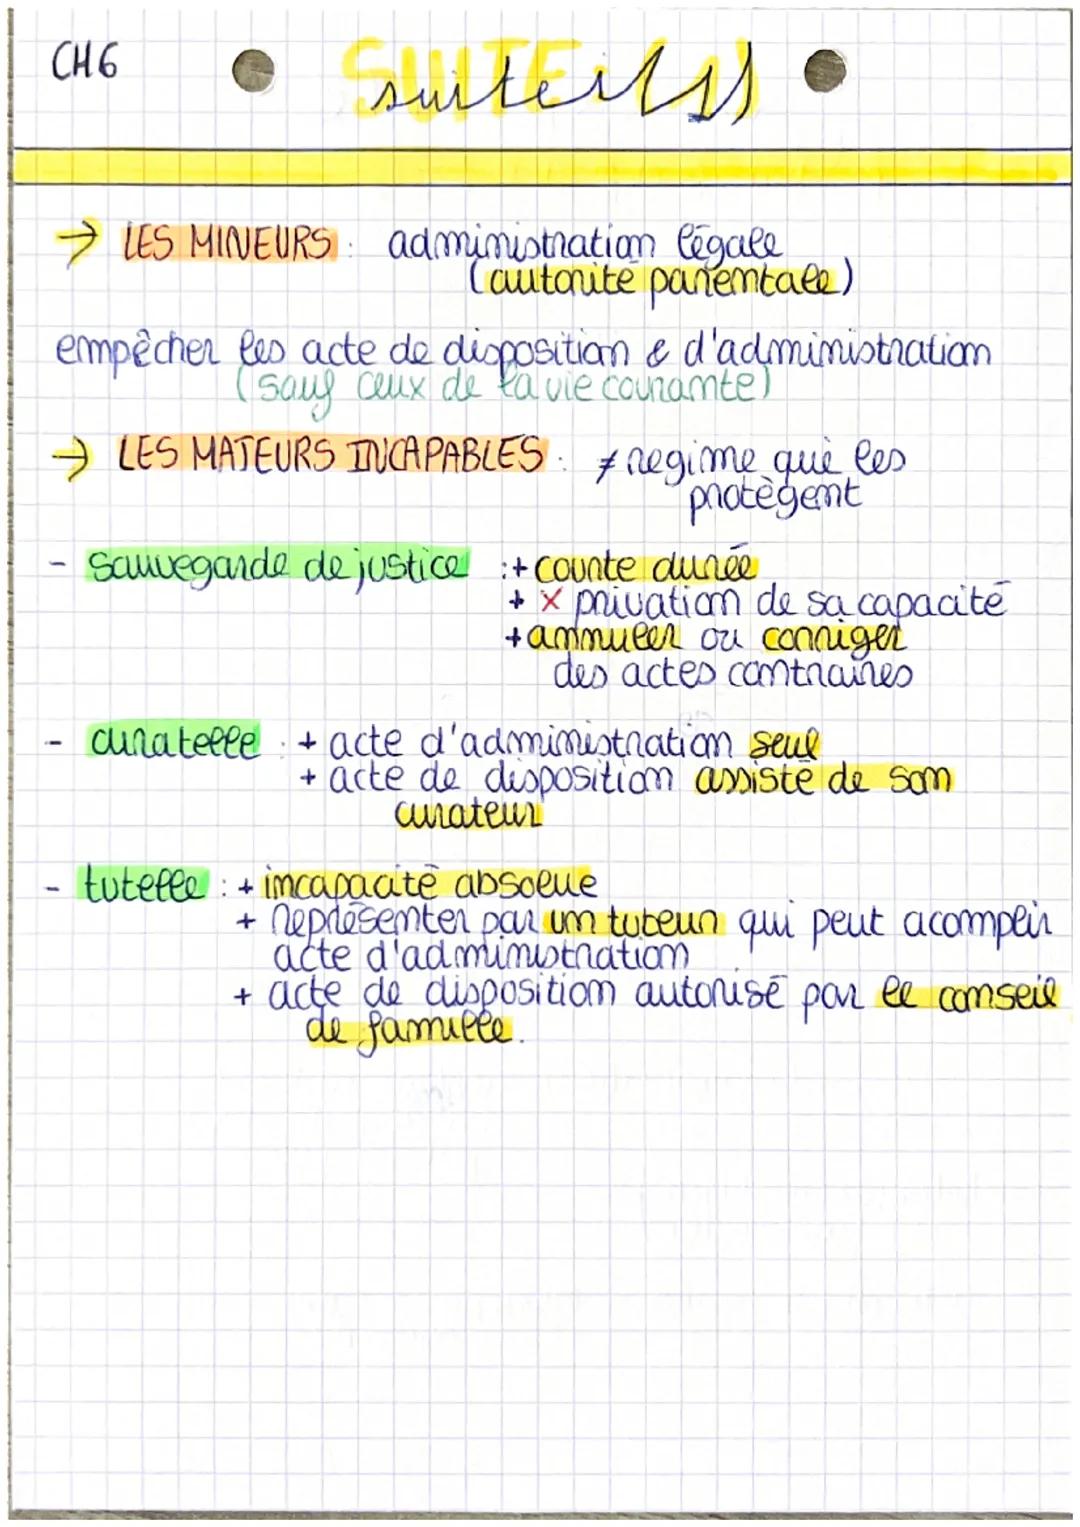 CH6
SUITE (1)
suite (1)
→ LES MINEURS : administration légale
(autorité parentale)
empêcher les acte de disposition & d'administration
(sauf ceux de la vie courante)
→ LES MAJEURS INCAPABLES : ≠ regime qui les
protègent
- sauvegarde de justice : + courte durée
+ × privation de sa capacité
+ annuler ou corriger
des actes contraires
- curatelle : + acte d'administration seul
+ acte de disposition assisté de son
curateur
- tutelle : + incapacité absolue
+ représenter par un tuteur qui peut acomplir
acte d'administration
+ acte de disposition autorisé par le conseil
de famille.